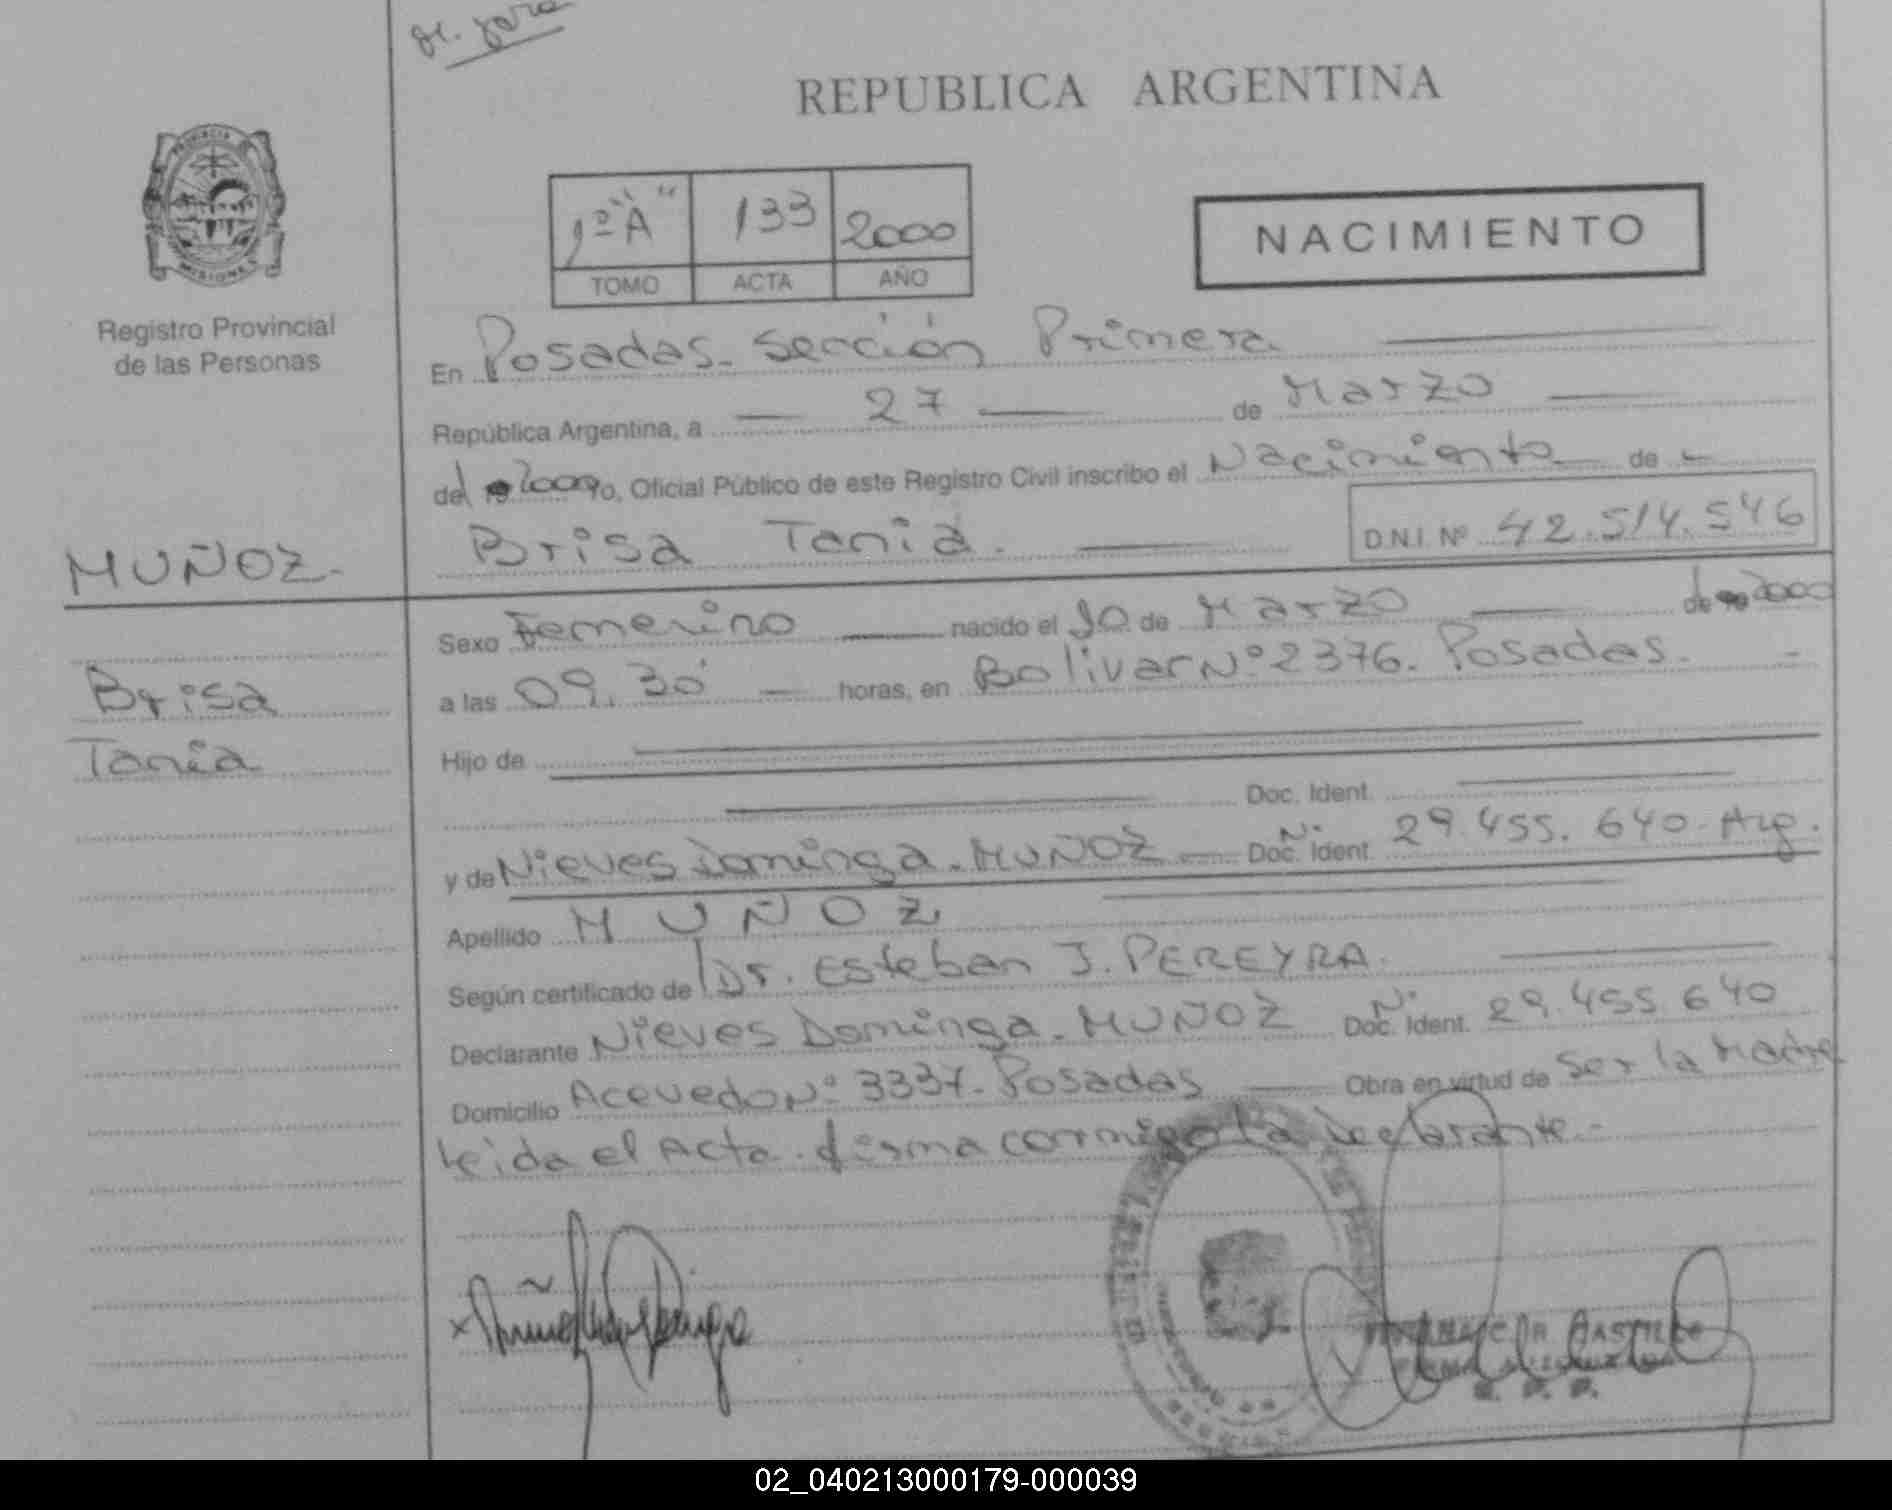 REPUBLICA ARGENTINA
PROVINCIA DE
MISIONES
Registro Provincial
de las Personas
1º "A" 133 2000
TOMO ACTA AÑO
NACIMIENTO
En Posadas. Sección Primera
República Argentina, a 27 de Marzo
del 2000 yo, Oficial Público de este Registro Civil inscribo el Nacimiento de
Brisa Tania. D.N.I. Nº 42.514.546
MUÑOZ.
Brisa
Tania
Sexo Femenino nacido el 10 de Marzo de 2000
a las 09.30' horas, en Bolivar Nº 2376. Posadas.
Hijo de
Doc. Ident.
y de Nieves Dominga. MUÑOZ Doc. Nº Ident. 29.455.640. Arg.
Apellido MUÑOZ
Según certificado de Dr. Esteban J. PEREYRA.
Declarante Nieves Dominga. MUÑOZ Doc. Nº Ident. 29.455.640
Domicilio Acevedo Nº 3337. Posadas Obra en virtud de ser la Madre
Leida el Acta. firma conmigo la Declarante.-
02_040213000179-000039